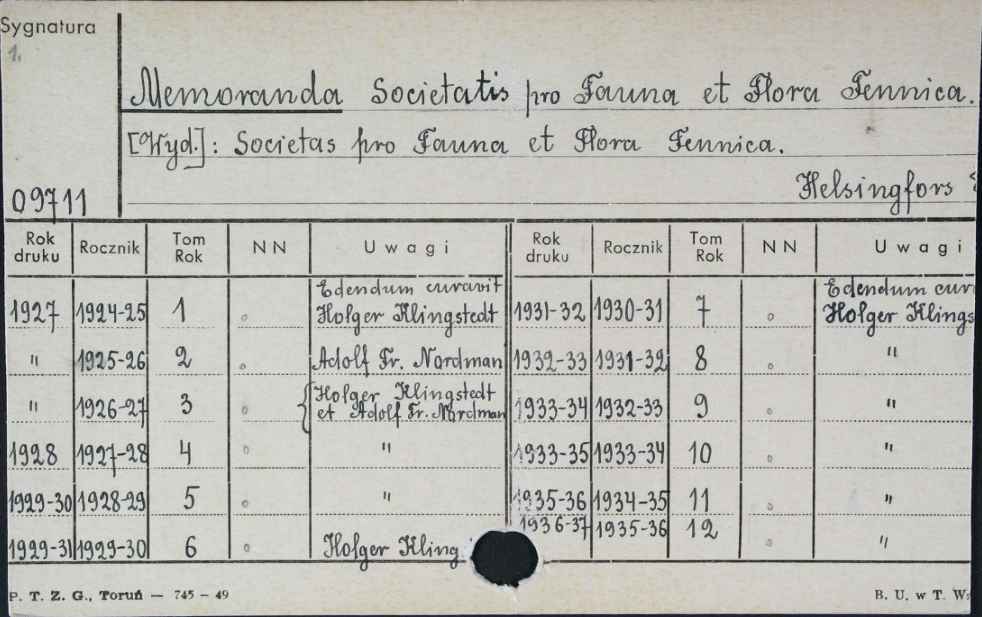 Sygnatura
1.
Memoranda Societatis pro Fauna et Flora Fennica.
[Wyd.]: Societas pro Fauna et Flora Fennica.
Helsingfors
09711
Rok druku Rocznik Tom Rok NN Uwagi Rok druku Rocznik Tom Rok NN Uwagi
Edendum curavit Edendum cur
1927 1924-25 1 Holger Klingstedt 1931-32 1930-31 7 Holger Klings
" 1925-26 2 Adolf Fr. Nordman 1932-33 1931-32 8 "
" 1926-27 3 { Holger Klingstedt et Adolf Fr. Nordman 1933-34 1932-33 9 "
1928 1927-28 4 " 1933-35 1933-34 10 "
1929-30 1928-29 5 " 1935-36 1934-35 11 "
1929-31 1929-30 6 Holger Kling 1936-37 1935-36 12 "
P. T. Z. G., Toruń — 745 – 49
B. U. w T. W